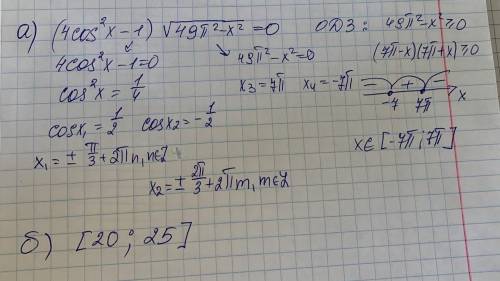 а) (4cos²x-1) √49π²-x² =0 ОДЗ: 49π²-x²≥0
4cos²x-1=0 49π²-x²=0 (7π-x)(7π+x)≥0
cos²x = 1/4 x₃=7π x₄=-7π - + -
-7 7π x
cosx₁ = 1/2 cosx₂=-1/2
x∈[-7π;7π]
x₁ = ± π/3 + 2πn, n∈Z
x₂ = ± 2π/3 + 2πm, m∈Z
б) [20; 25]